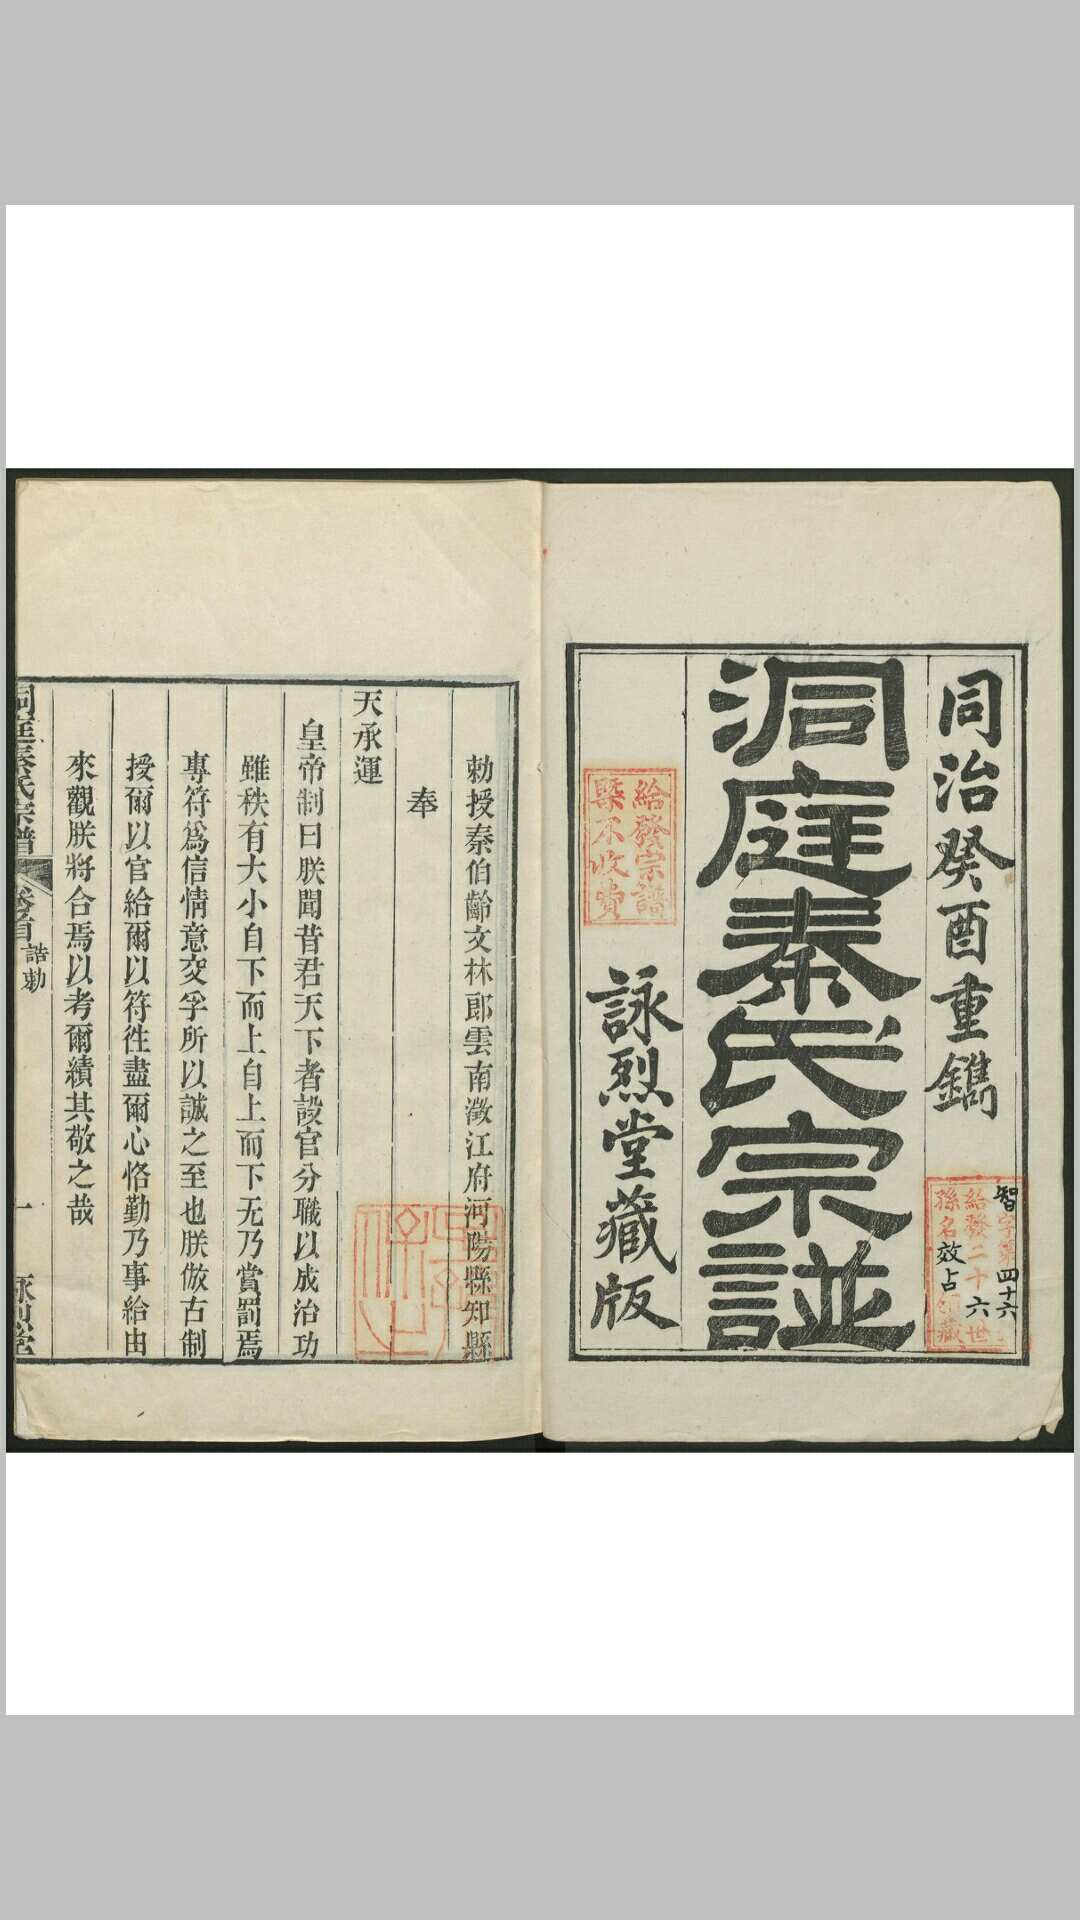 同治癸酉重鐫
智字第四十六
給發二十六世
孫名效占領藏
洞庭秦氏宗譜
給發宗譜
槩不收費
詠烈堂藏版
勅授秦伯齡文林郎雲南澂江府河陽縣知縣
奉
天承運
皇帝制曰朕聞昔君天下者設官分職以成治功
雖秩有大小自下而上自上而下无乃賞罰焉
專符爲信情意交孚所以誠之至也朕倣古制
授爾以官給爾以符徃盡爾心恪勤乃事給由
來觀朕將合焉以考爾績其敬之哉
洞庭秦氏宗譜 卷首 誥勅 一 詠烈堂